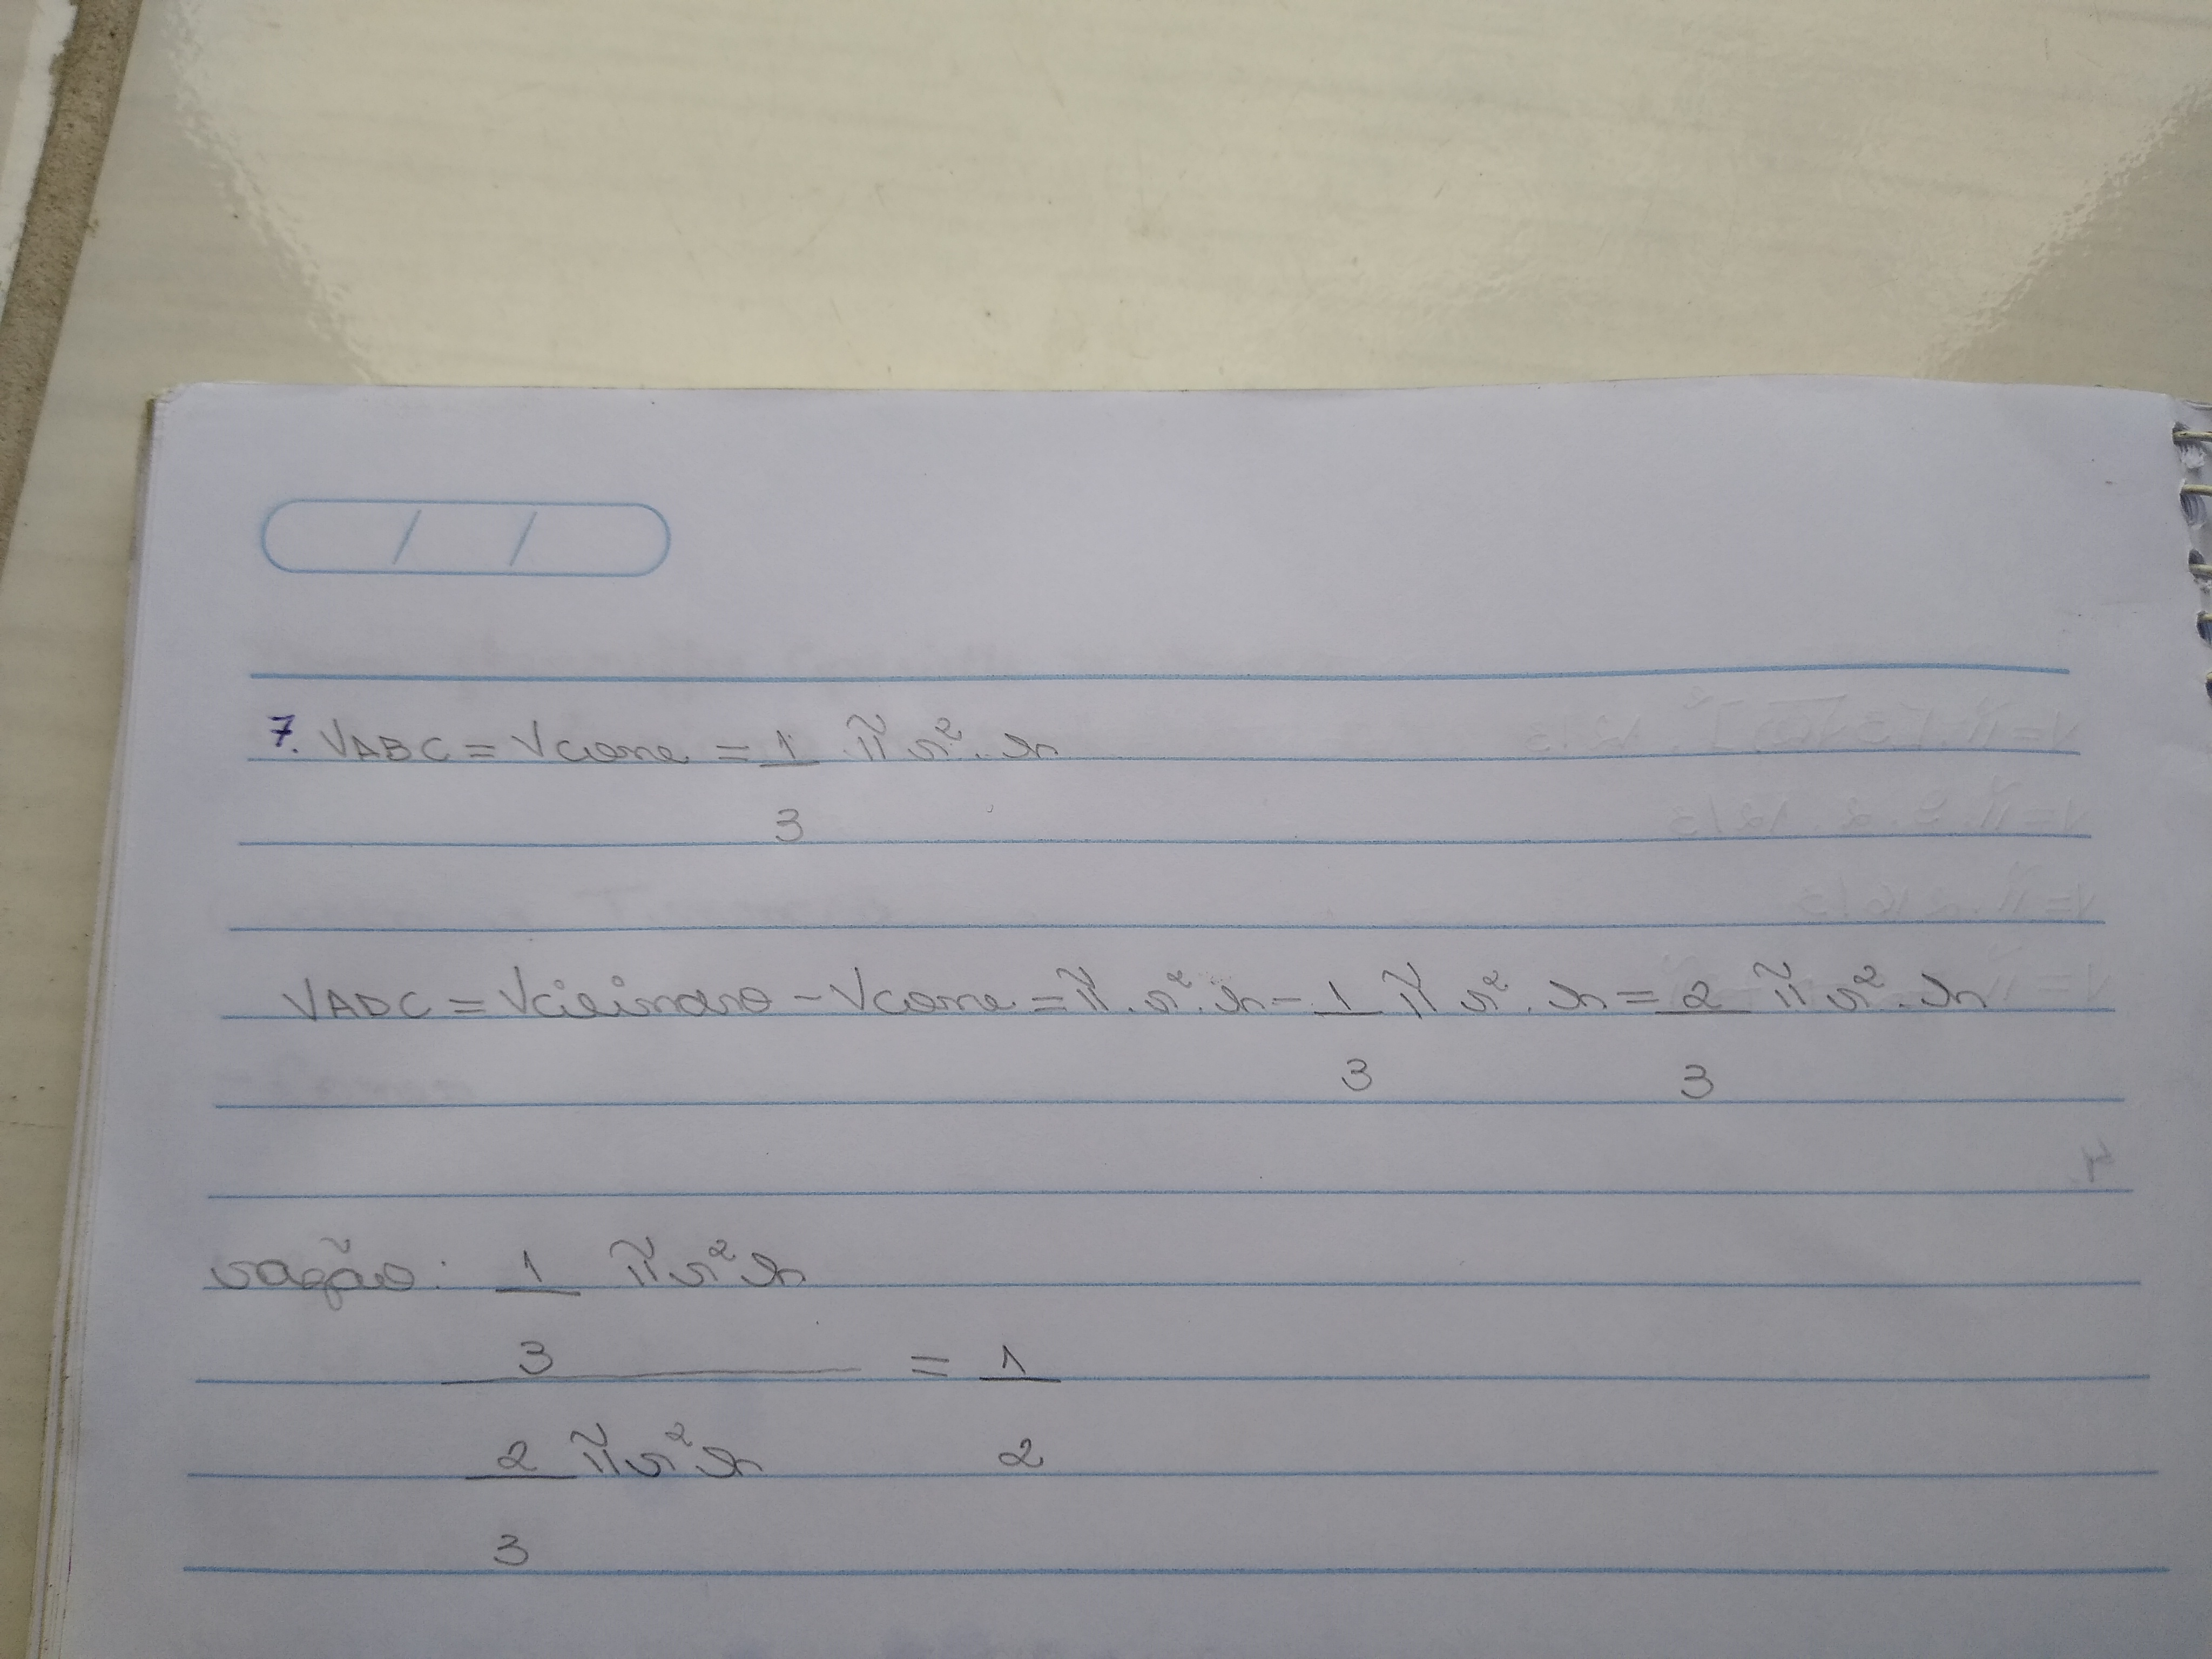 7. VABC = Vcone = 1 π r². h
3
VADC = Vcilindro - Vcone = π. r². h - 1 π r². h = 2 π r². h
3 3
razão: 1 π r² h
3 = 1
2 π r² h 2
3